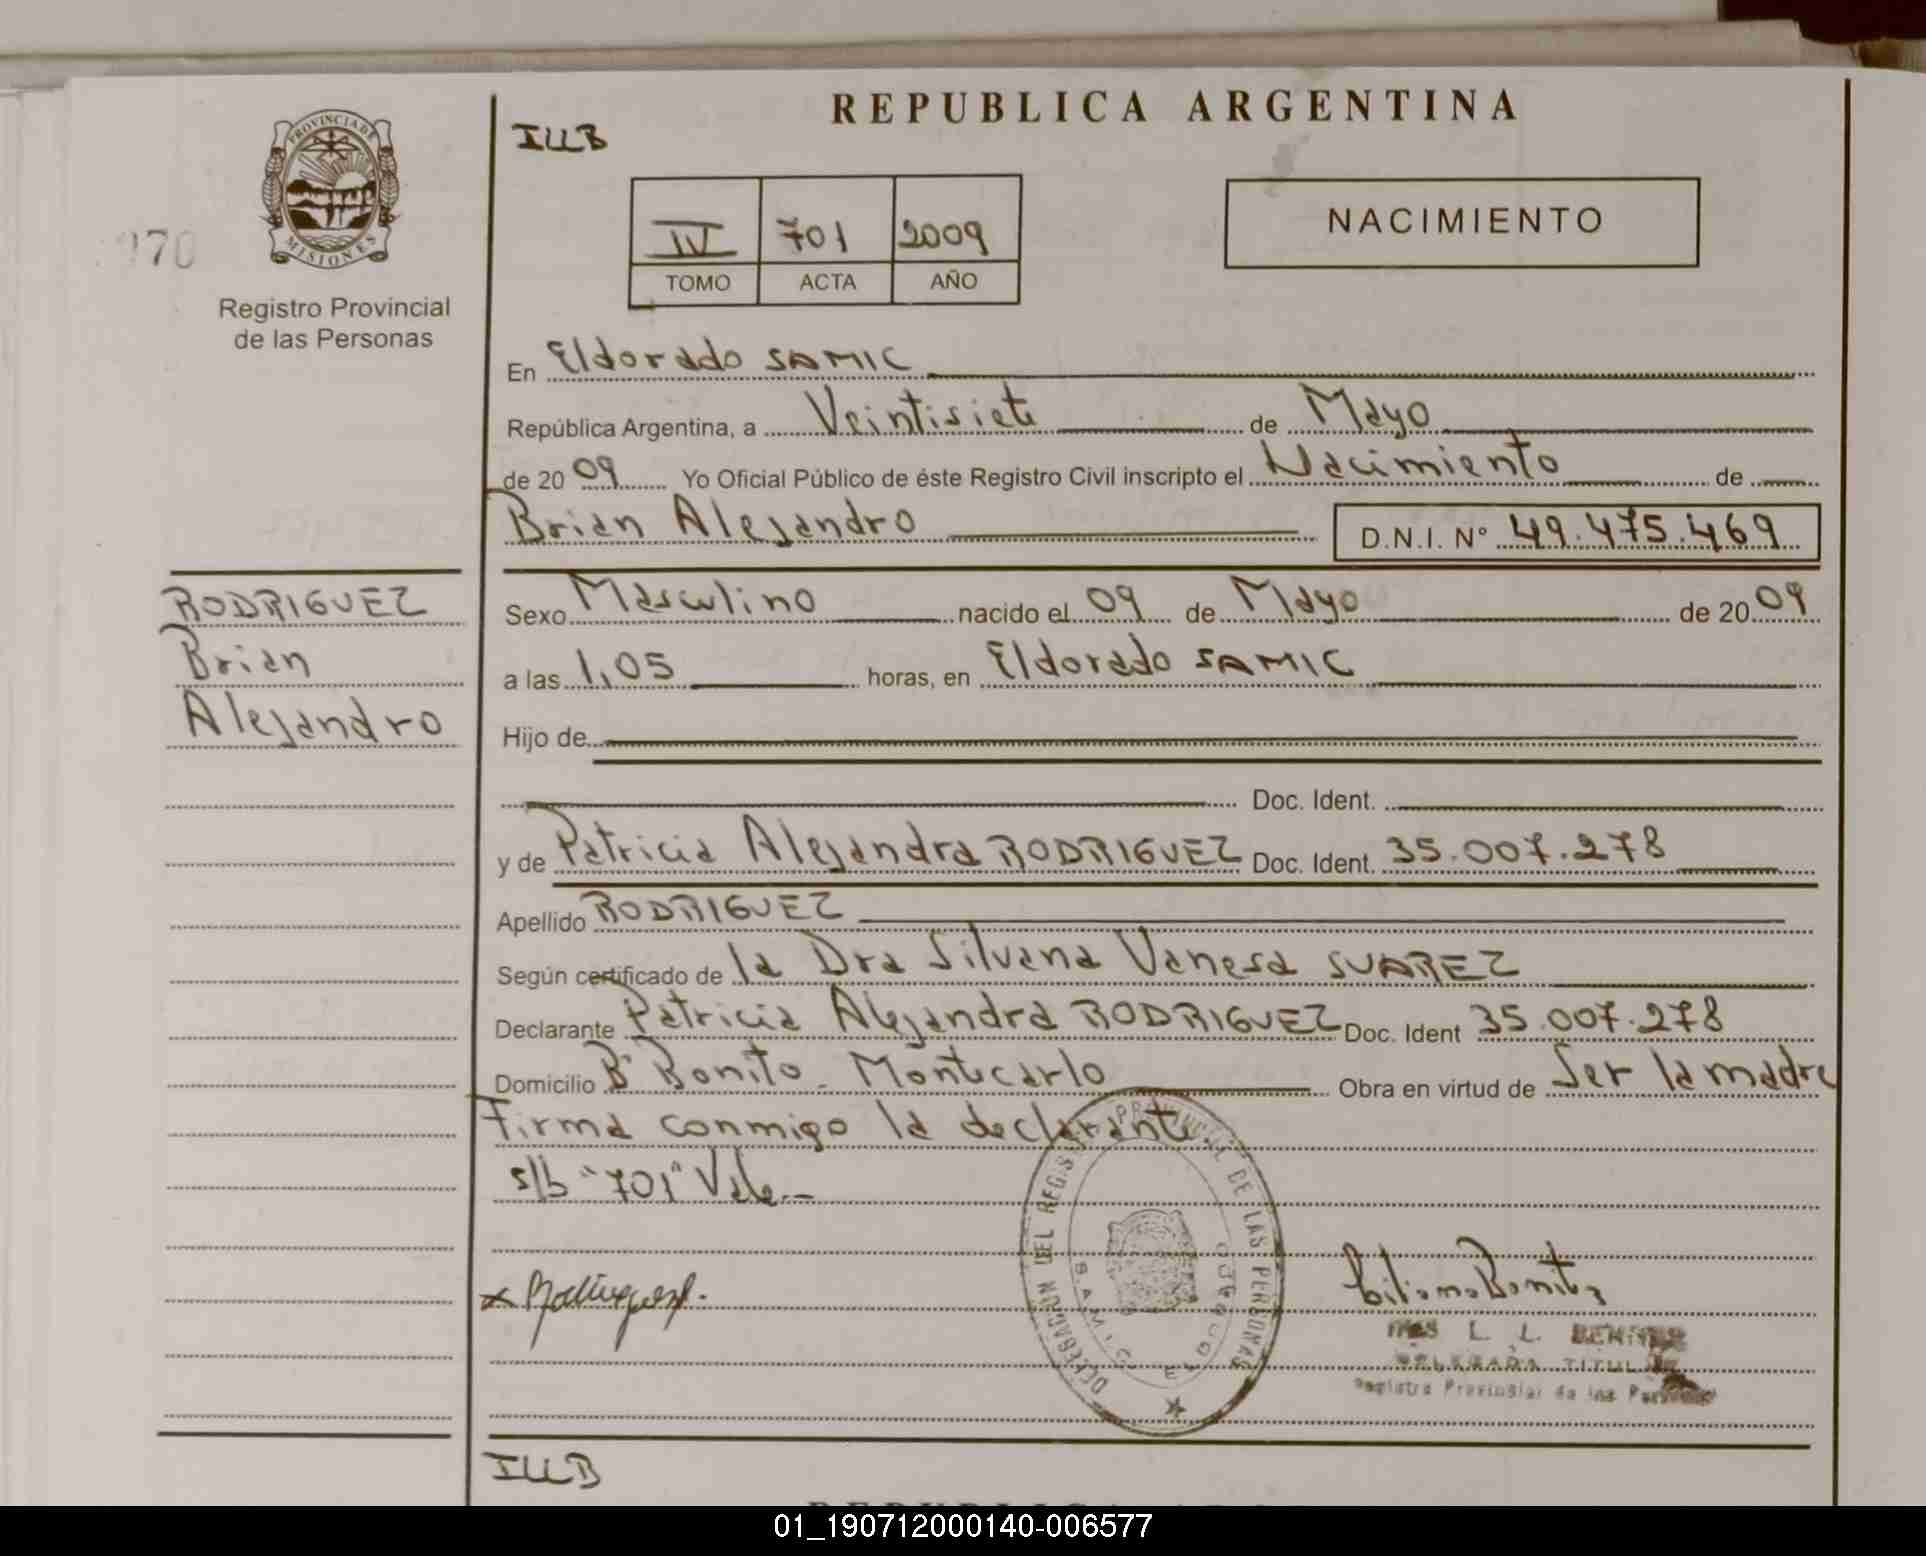 REPUBLICA ARGENTINA
ILLB
PROVINCIA DE
MISIONES
Registro Provincial
de las Personas
IV 701 2009
TOMO ACTA AÑO
NACIMIENTO
En Eldorado SAMIC
República Argentina, a Veintisiete de Mayo
de 2009 Yo Oficial Público de éste Registro Civil inscripto el Nacimiento de
Brian Alejandro D.N.I. N° 49.475.469
RODRIGUEZ
Brian
Alejandro
Sexo Masculino nacido el 09 de Mayo de 2009
a las 1,05 horas, en Eldorado SAMIC
Hijo de
Doc. Ident.
y de Patricia Alejandra RODRIGUEZ Doc. Ident. 35.007.278
Apellido RODRIGUEZ
Según certificado de la Dra Silvana Vanesa SUAREZ
Declarante Patricia Alejandra RODRIGUEZ Doc. Ident 35.007.278
Domicilio B° Bonito - Montecarlo Obra en virtud de Ser la madre
Firma conmigo la declarante
s/b "701" Vale
DELEGACION DEL REGISTRO PROVINCIAL DE LAS PERSONAS
S.A.M.I.C.
ELDORADO
L. L.
DELEGADA TITULAR
Registro Provincial de las Personas
ILLB
01_190712000140-006577